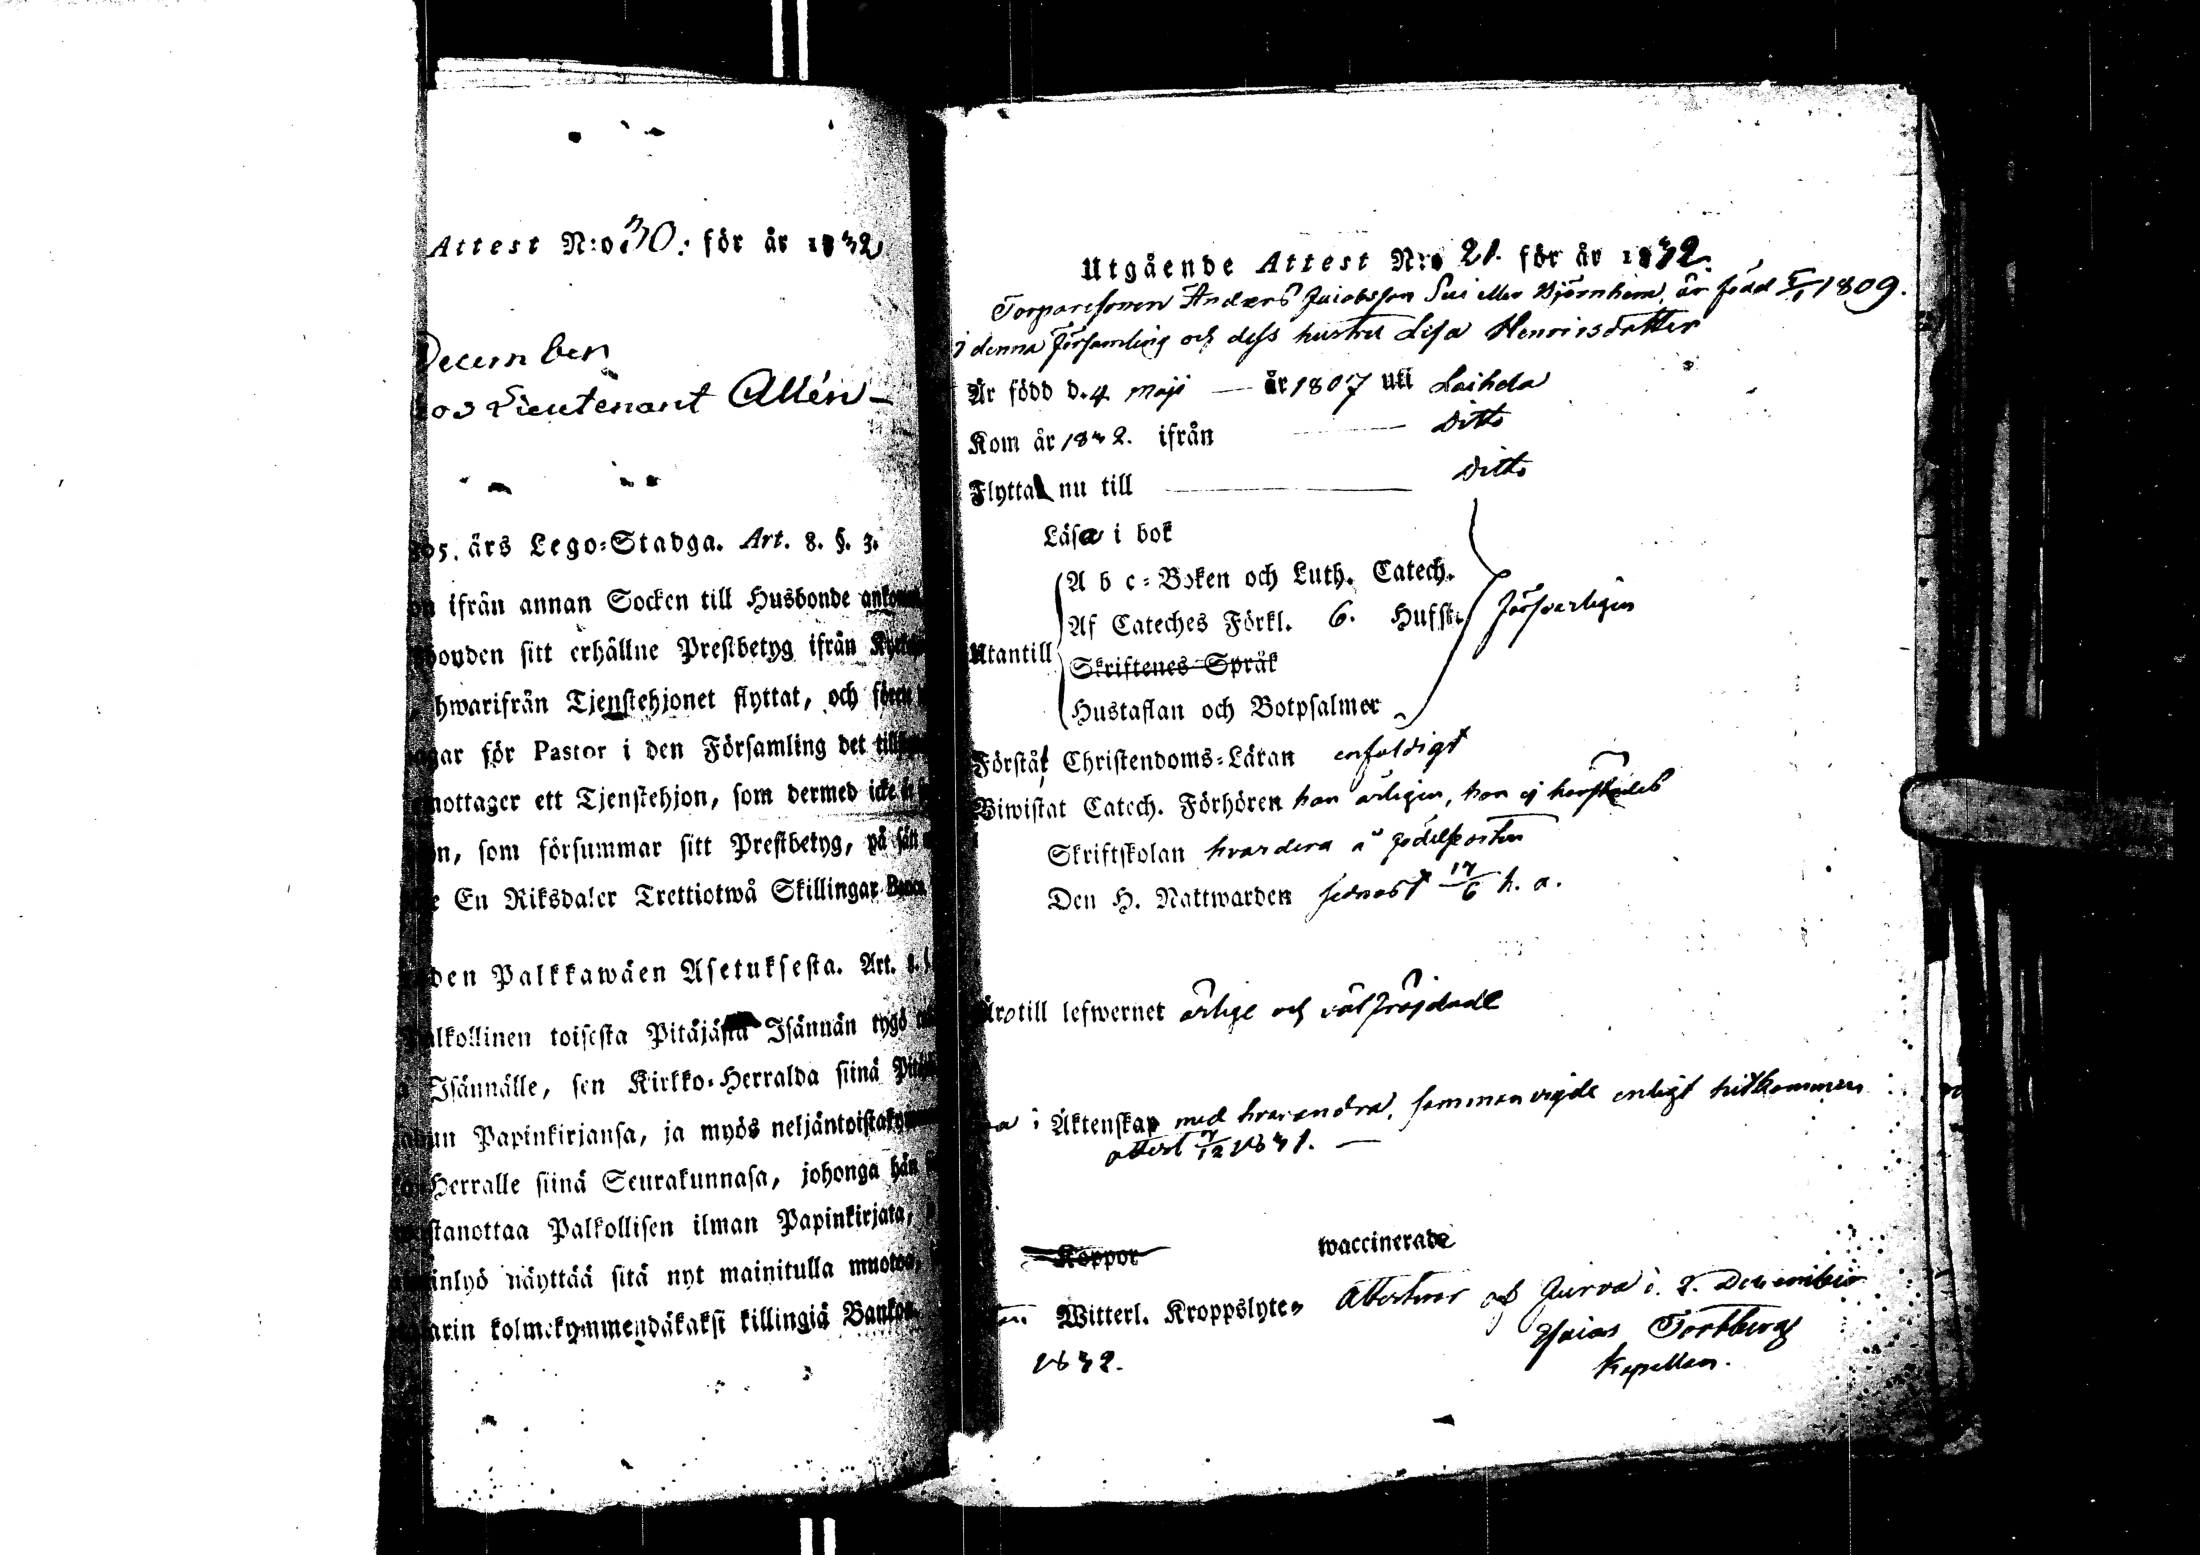 Attest N:o 30. för år 1832
December
hos Lieutenant Allén
805. års Lego-Stadga. Art. 8. §. 3.
ifrån annan Socken till Husbonde
sitt erhållne Prestbetyg ifrån
hwarifrån Tjenstehjonet flyttat, och
för Pastor i den Församling det
mottager ett Tjenstehjon, som dermed icke
som försummar sitt Prestbetyg, på sätt
En Riksdaler Trettiotwå Skillingar Banco
den Palkkawäen Asetuksesta. Art.
Palkollinen toisesta Pitäjästä Isännän tygö
Isännälle, sen Kirkko-Herralda siinä
Papinkirjansa, ja myös neljäntoista
Herralle siinä Seurakunnasa, johonga hän
Palkollisen ilman Papinkirjata,
näyttää sitä nyt mainitulla
kolmekymmendäkaksi killingiä
Utgående Attest N:o 21. för år 1832.
Torparesonen Anders Jacobsson Sui eller Björnhem, är född 1809.
i denna församling och dess hustru Lisa Henricsdotter
Är född d. 4 Maji år 1807 uti Laihela
Kom år 1832. ifrån Ditto
Flytta nu till Ditto
Läsa i bok
A b c-Boken och Luth. Catech.
Af Cateches Förkl. 6. Hufst. försvarligen
Utantill
Skriftenes Språk
Hustaflan och Botpsalmer
Förstå Christendoms-Läran enfaldigt
Biwistat Catech. Förhören han årligen, hon ej härstädes
Skriftskolan hvardera å
Den H. Nattwarden sednast 17/6 h. a.
Äro till lefwernet ärlige och väl fräjdade
i Äktenskap med hvarandra, sammanvigde enligt hitkommen
attest 7/12 1831.
Koppor waccinerade
Witterl. Kroppslyten Attesterar af Jurva d. 2. December
1832. Esaias Forsberg
Kapellan.